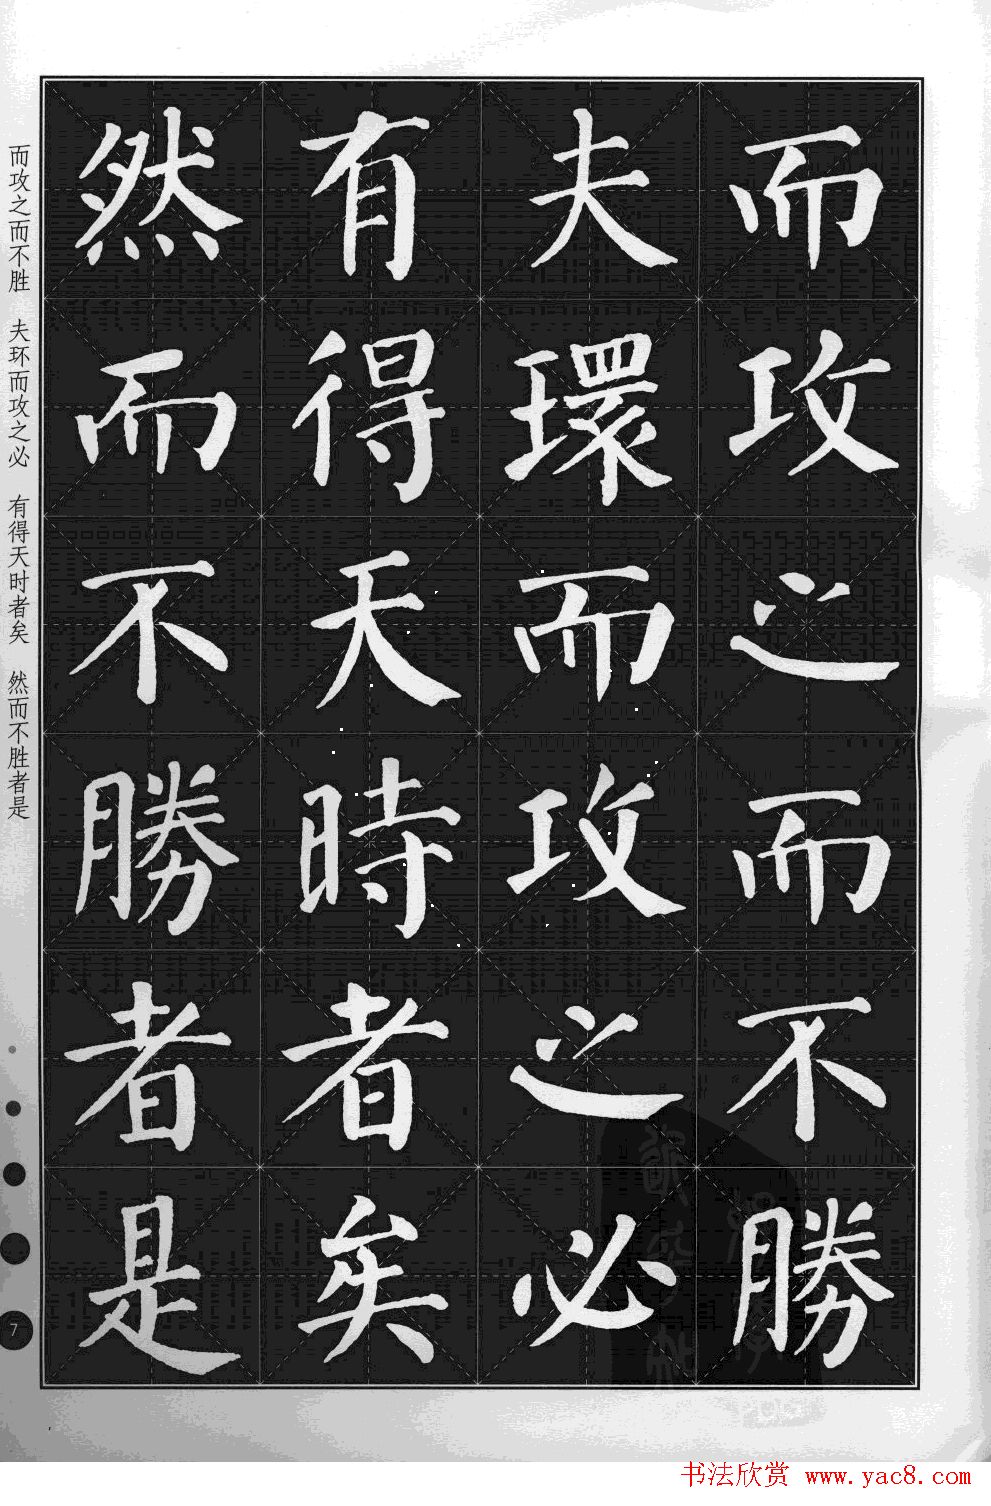 而攻之而不勝
夫環而攻之必
有得天時者矣
然而不勝者是
而攻之而不胜 夫环而攻之必 有得天时者矣 然而不胜者是
7
书法欣赏 www.yac8.com